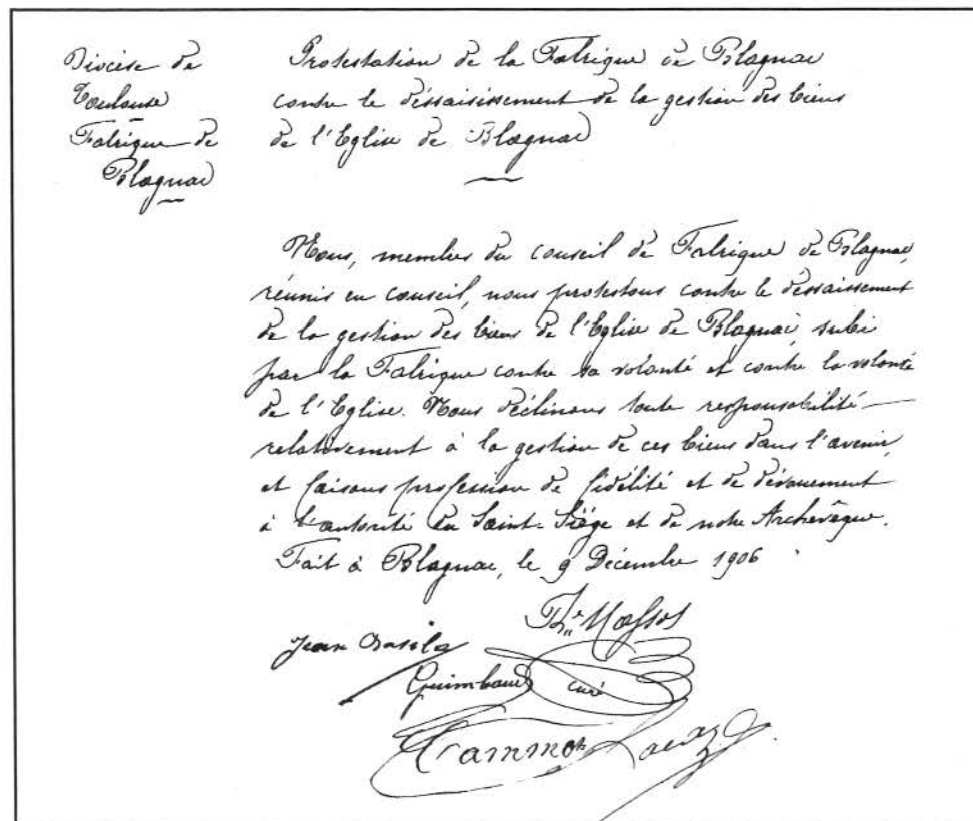 Diocèse de
Toulouse
Fabrique de
Blagnac
Protestation de la Fabrique de Blagnac
contre le déssaisissement de la gestion des biens
de l'Eglise de Blagnac
Nous, membres du conseil de Fabrique de Blagnac,
réunis en conseil, nous protestons contre le déssaissement
de la gestion des biens de l'Eglise de Blagnac, subi
par la Fabrique contre sa volonté et contre la volonté
de l'Eglise. Nous déclinons toute responsabilité
relativement à la gestion de ces biens dans l'avenir,
et faisons profession de fidélité et de dévouement
à l'autorité du Saint-Siège et de notre Archevêque.
Fait à Blagnac, le 9 Décembre 1906
Jean
Guimbaud curé